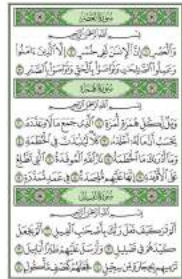 سورة العصر
بسم الله الرحمن الرحيم
والعصر إن الإنسن لفي خسر إلا الذين ءامنوا
وعملوا الصلحت وتواصوا بالحق وتواصوا بالصبر
سورة الهمزة
بسم الله الرحمن الرحيم
ويل لكل همزة لمزة الذي جمع مالا وعدده
يحسب أن ماله أخلده كلا لينبذن في الحطمة
وما أدرىك ما الحطمة نار الله الموقدة التي تطلع
على الأفدة إنها عليهم مؤصدة في عمد ممددة
سورة الفيل
بسم الله الرحمن الرحيم
ألم تر كيف فعل ربك بأصحب الفيل ألم يجعل
كيدهم في تضليل وأرسل عليهم طيرا أبابيل
ترميهم بحجارة من سجيل فجعلهم كعصف مأكول